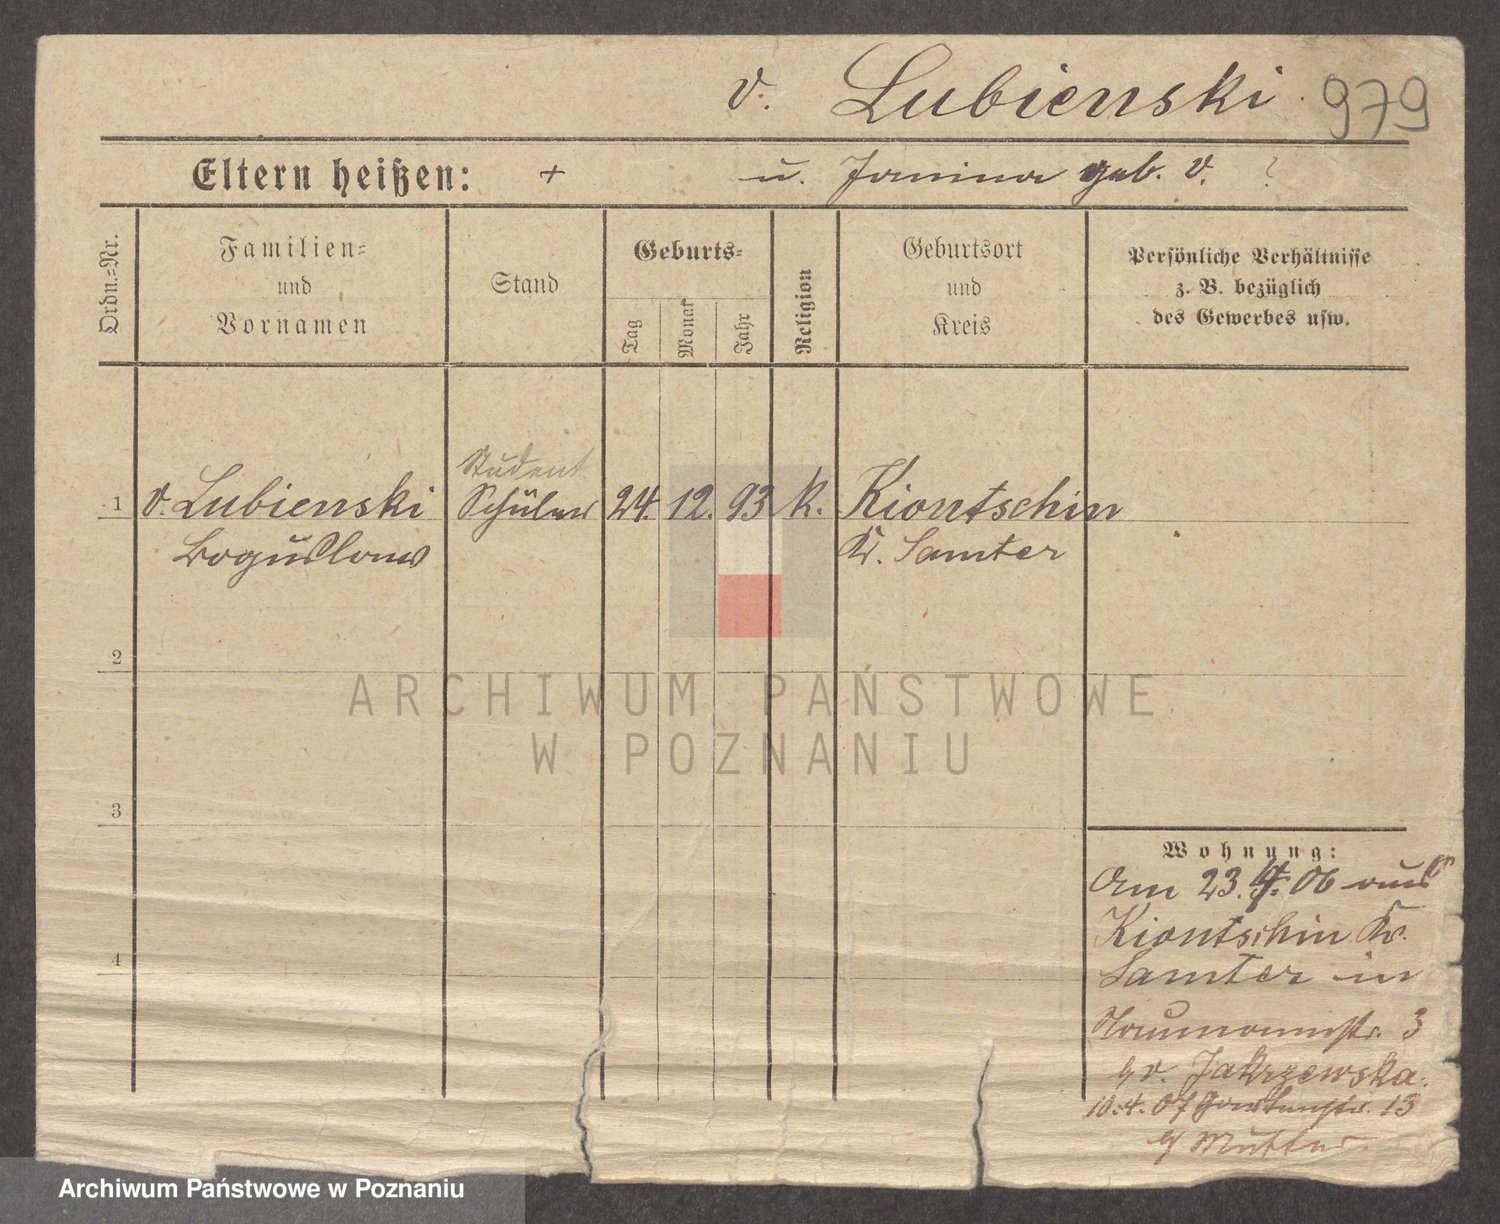 v. Lubienski 979
Eltern heißen: + u. Janina geb. v. ?
Ordn.-Nr.
Familien-
und
Vornamen
Stand
Geburts-
Tag
Monat
Jahr
Religion
Geburtsort
und
Kreis
Persönliche Verhältnisse
z. B. bezüglich
des Gewerbes usw.
Student
1 v. Lubienski Schüler 24. 12. 93 k. Kiontschin
Boguslaus Kr. Samter
2
ARCHIWUM PAŃSTWOWE
W POZNANIU
3
Wohnung:
Am 23. 4. 06 aus
Kiontschin Kr.
4
Samter in
Naumannstr. 3
b/ v. Zakrzewska.
10.4.07 Gartenstr. 13
b/ Mutter
Archiwum Państwowe w Poznaniu